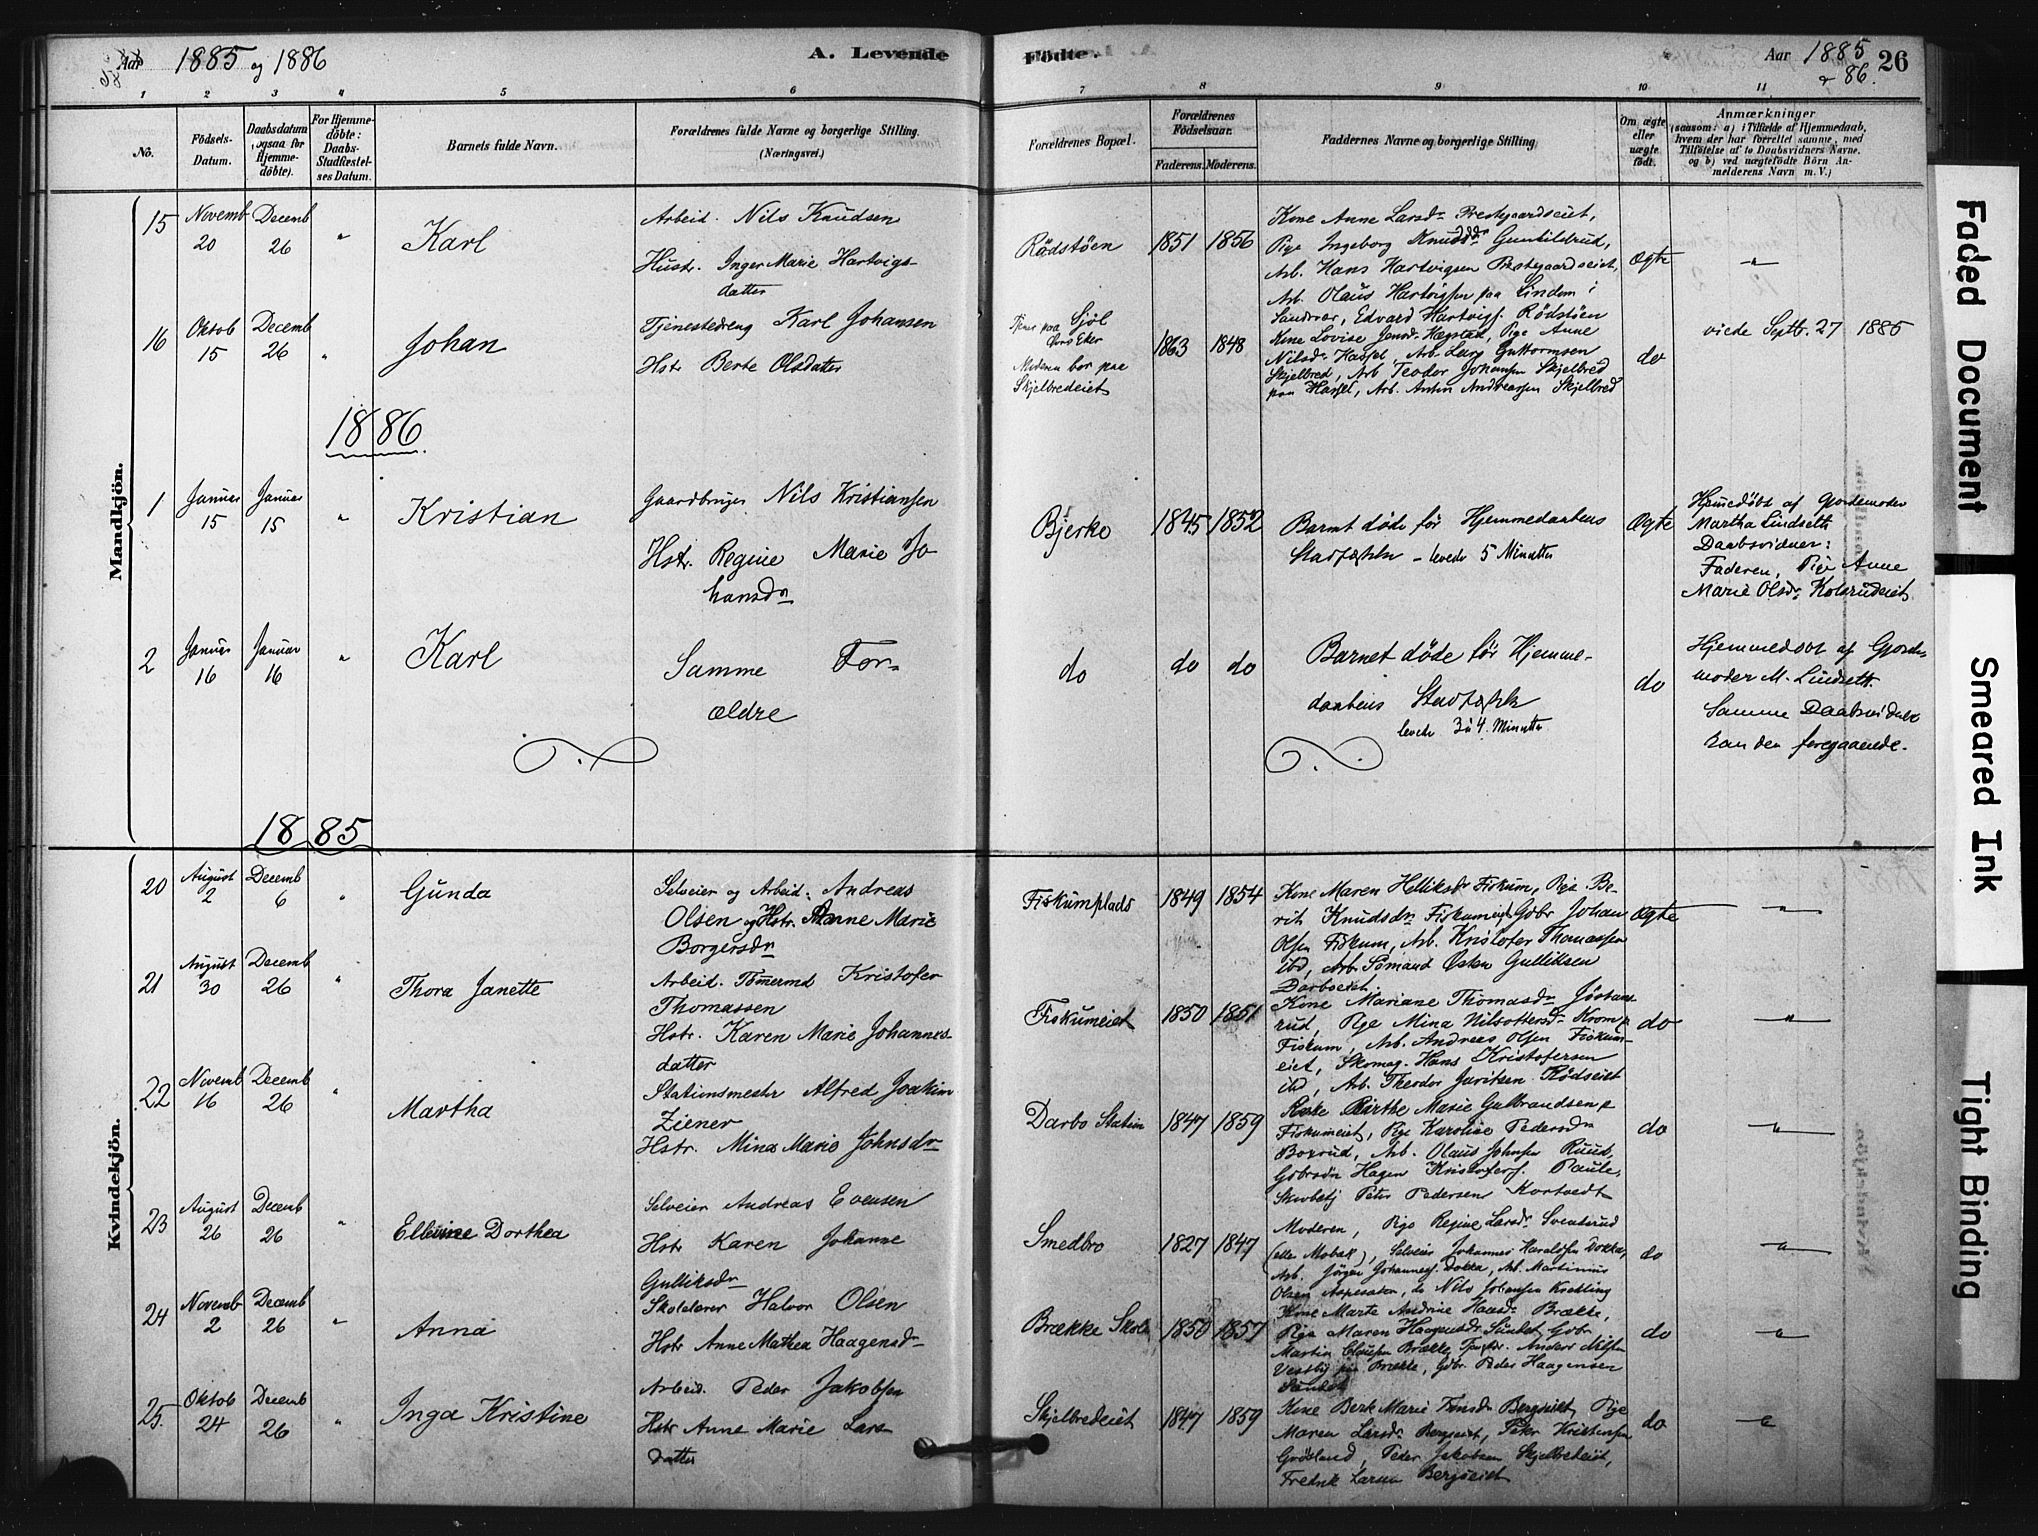 Aar 1885 og 1886
A. Levende
Födte.
Aar 1885 & 86.
26
1 2 3 4 5 6 7 8 9 10 11
No.
Födsels-
Datum.
Daabsdatum
(ogsaa for
Hjemme-
döbte).
For Hjemme-
döbte:
Daabs-
Stadfæstel-
ses Datum.
Barnets fulde Navn.
Forældrenes fulde Navne og borgerlige Stilling.
(Næringsvei.)
Forældrenes Bopæl.
Forældrenes
Födselsaar.
Faderens. Moderens.
Faddernes Navne og borgerlige Stilling.
Om ægte
eller
uægte
födt.
Anmærkninger
(saasom: a) i Tilfælde af Hjemmedaab,
hvem der har forrettet samme, med
Tilföielse af to Daabsvidners Navne.
og b) ved uægtefödte Börn An-
melderens Navn m. V.)
Mandkjön.
15
Novemb
20
Decemb
26
"
Karl
Arbeid. Nils Knudsen
Hustr. Inger Marie Hartvigs-
datter
Rödstöen
1851 1856
Kone Anne Larsd. Prestegaardseiet,
Pige Ingeborg Knudsd. Gunhildrud,
Arb. Hans Hartvigsen Præstegaardseiet,
Arb. Olaus Hartvigsen paa Lindem i
Sandsvær, Edvard Hartvigs. Rödstöen
Ægte
"
16
Oktob
15
Decemb
26
"
Johan
Tjenestedreng Karl Johansen
Hstr Berte Olsdatter
Tjener paa Sjöl
Övre Eker
Moderen bor paa
Skjelbredeiet
1863 1848
Kone Lovise Jensd. Hagstad, Pige Anne
Nilsd. Hassel, Arb. Lars Guttormsen
Skjelbred, Arb Teodor Johansen Skjelbred
paa Hassel, Arb. Anton Andreassen Skjelbred
do
viede Septbr. 27 1885
1886
1
Januar
15
Januar
15
"
Kristian
Gaardbruger Nils Kristiansen
Hstr. Regine Marie Jo-
hansdr
Bjerke
1845 1852
Barnet døde før Hjemmedaabens
Stadfæstelse - levede 5 Minutter
Ægte
Hjemmedöbt af Gjordemoder
Martha Lindseth
Daabsvidner:
Faderen, Pige Anne
Marie Olsdr. Kolsrudeiet
2
Januar
16
Januar
16
"
Karl
Samme For-
ældre
do
do do
Barnet døde før Hjemme-
daabens Stadfæstelse
levede 3 à 4 Minutter
do
Hjemmedøbt af Gjorde-
moder M. Lindseth.
Samme Daabsvidner
som den foregaaende.
1885
Kvindekjön.
20
August
2
Decemb
6
"
Gunda
Selveier og Arbeid. Andreas
Olsen og Hstr. Anne Marie
Borgersdr
Fiskumplads
1849 1854
Kone Maren Helliksdr Fiskum, Pige Be-
rit Knudsdr. Fiskumeiet, Gdbr Johan
Olsen Fiskum, Arb. Kristofer Thomassen
ibd, Arb Osten Gulliksen
Darboeiet.
Ægte
"
21
August
30
Decemb
26
"
Thora Janette
Arbeid. Tömermd Kristofer
Thomassen
Hstr. Karen Marie Johannes-
datter
Fiskumeiet
1850 1851
Kone Mariane Thomasdr
rud, Pige Mina Krom p
Fiskum, Arb. Andreas Olsen Fiskum-
eiet, Skomag. Hans Kristofersen
ibd, Arb. Theodor Rödseiet
do
"
22
Novemb
16
Decemb
26
"
Martha
Stationsmester Alfred Joakim
Ziener
Hstr. Mina Marie Johnsdr
Darbo Station
1847 1859
Birthe Marie Gulbrandsen p
Fiskumeiet, Pige Karoline Pedersdr
Arb. Olaus Johnsen Ruud,
Gdbrsön Hagen Kristofers. Paule,
Skrobetj Peter Pedersen Kortvedt
do
"
23
August
26
Decemb
26
"
Ellevine Dorthea
Selveier Andreas Evensen
Hstr Karen Johanne
Gulliksdr
Smedbro
1827 1847
Moderen, Pige Regine Larsdr Svenbrud
(eller Mobæk), Selveier Johannes Haraldsen Dokka,
Arb. Jörgen Johannes. Dokka, Arb. Martinius
Olsen Aspesaten, do Nils Johansen Krekling
do
"
24
Novemb
2
Decemb
26
"
Anna
Skolelærer Halvor Olsen
Hstr Anne Mathea Haagensdr
Brække Skole
1850 1857
Kone Marte Andrine Hansdr Brække,
Pige Maren Haagensdr Sundet, Gdbr
Martin Clausen Brække, Anders Nilsen
Vestby paa Brække, Gdbr. Peder Haagensen
Sundet
do
"
25.
Oktob
24
Decemb
26
"
Inga Kristine
Arbeid. Peder Jakobsen
Hstr Anne Marie Lars-
datter
Skjelbredeiet
1847 1859
Kone Berte Marie Bergseiet, Pige
Maren Larsdr Bergseiet, Peter Kristensen
Grösland, Peder Jakobsen Skjelbredeiet,
Fredrik Larsen Bergseiet
do
"
Faded Document
Smeared Ink
Tight Binding